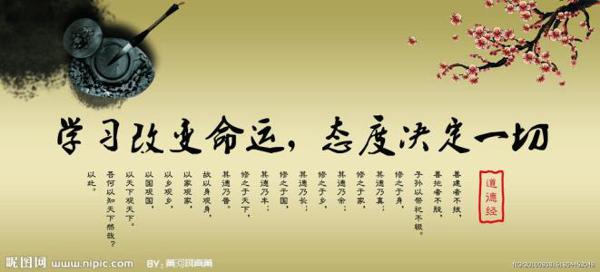 学习改变命运，态度决定一切
道德经
善建者不拔，
善抱者不脱，
子孙以祭祀不辍。
修之于身，
其德乃真；
修之于家，
其德乃余；
修之于乡，
其德乃长；
修之于国，
其德乃丰；
修之于天下，
其德乃普。
故以身观身，
以家观家，
以乡观乡，
以国观国，
以天下观天下。
吾何以知天下然哉？
以此。
昵图网
www.nipic.com
BY: